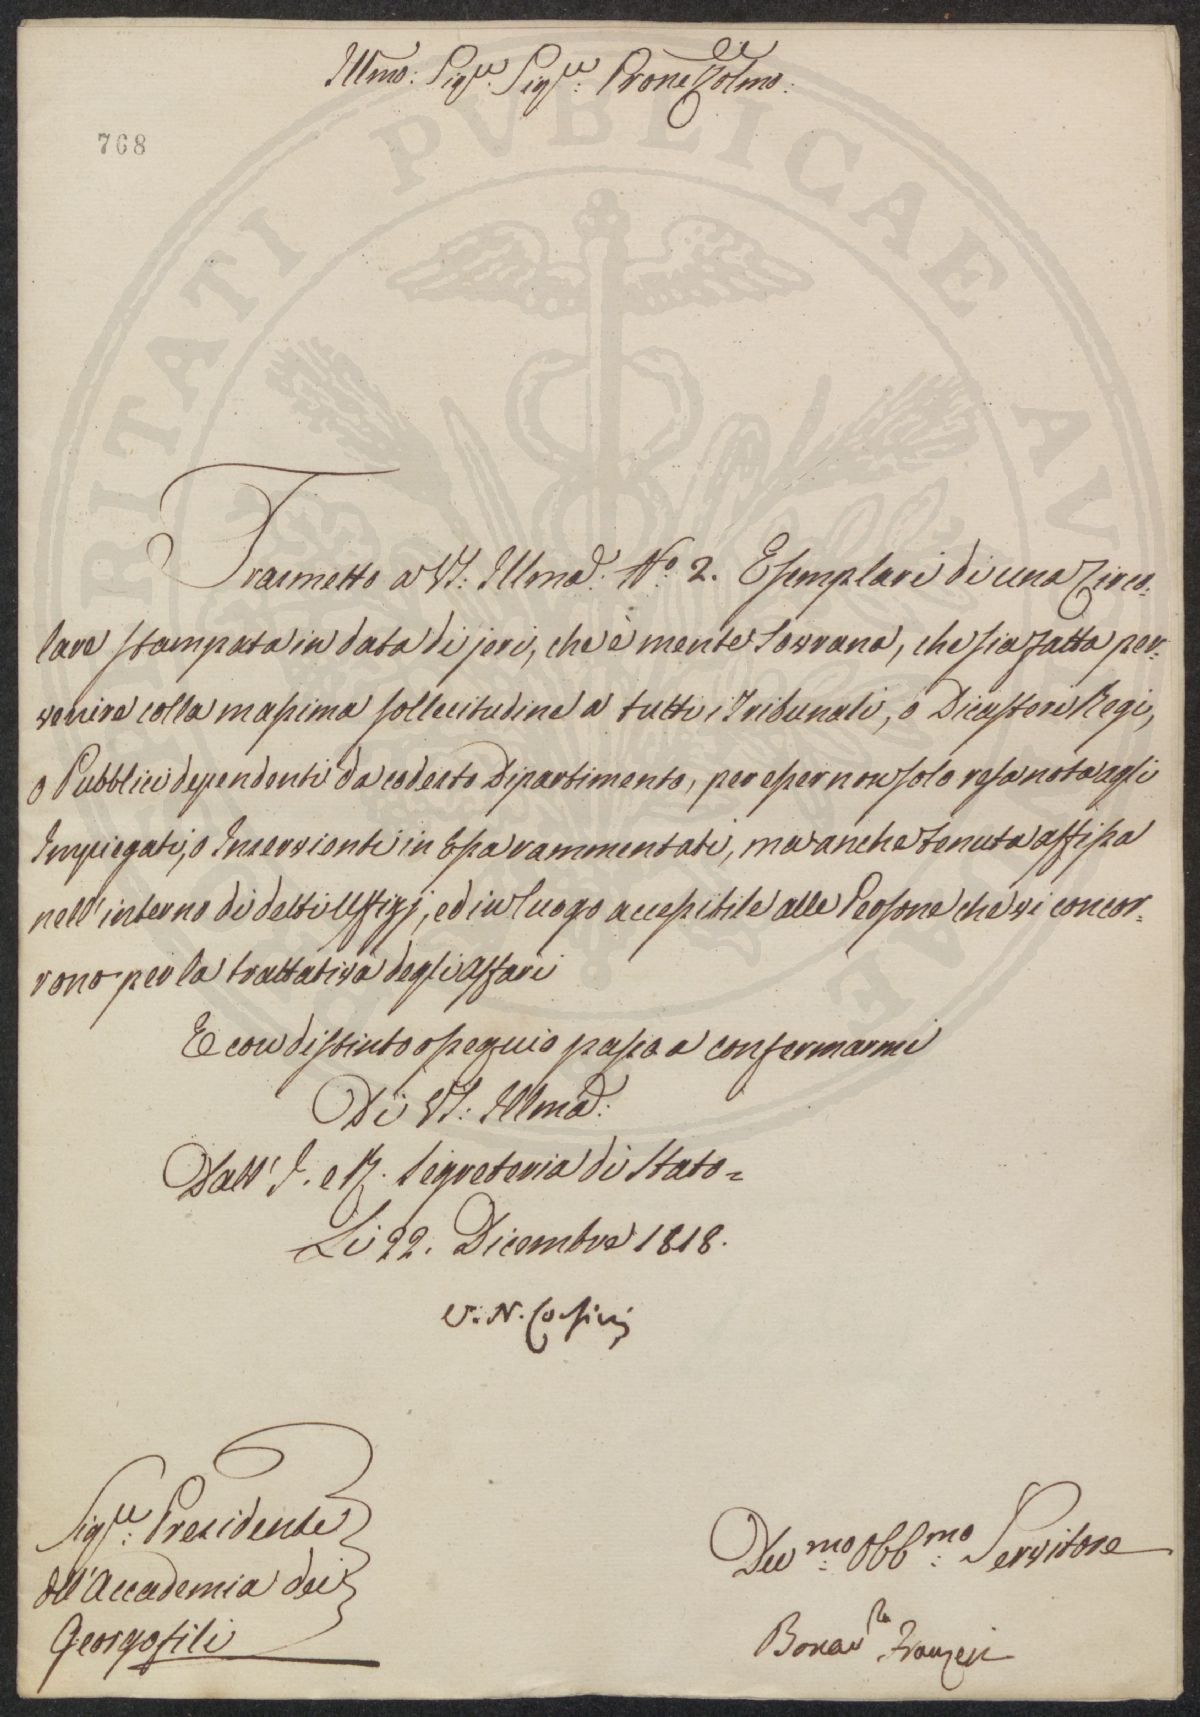 Illmo: Sigre: Sigre: Prone Colmo:
768
Trasmetto a VS: Illma: No: 2. Esemplari di una Circo-
lare stampata in data di jeri, che è mente Sovrana, che sia fatta per-
venire colla massima sollecitudine a tutti i Tribunali, o Dicasteri Regi,
o Pubblici dependenti da codesto Dipartimento, per esser non solo resa nota agli
Impiegati, o Inservienti in essa rammentati, ma anche tenuta affissa
nell' interno di detti Uffizj, ed in luogo accessibile alle Persone che vi concor-
rono per la trattativa degli affari
E con distinto ossequio passo a confermarmi
Di VS: Illma:
Dall' I. e R. Segreteria di Stato=
Li 22. Dicembre 1818.
V. N. Corsini
Sigre: Presidente
dell' Accademia dei
Georgofili
Devmo: Obbmo: Servitore
Bonavra Franzesi
PVBLICAE